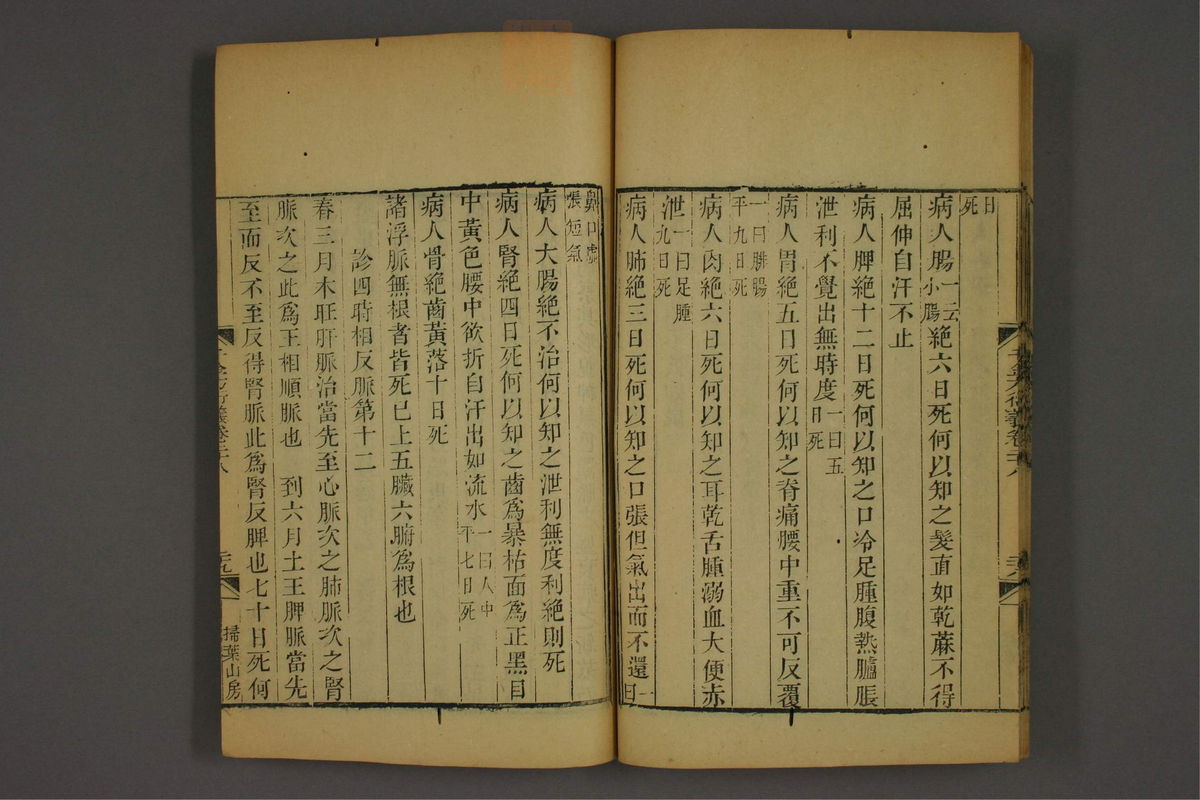 日
死
病人腸一云小腸絕六日死何以知之髮直如乾蔴不得
屈伸自汗不止
病人脾絕十二日死何以知之口冷足腫腹熱臚脹
泄利不覺出無時度一曰五日死
病人胃絕五日死何以知之脊痛腰中重不可反覆
一曰腓腸平九日死
病人肉絕六日死何以知之耳乾舌腫溺血大便赤
泄一曰足腫九日死
病人肺絕三日死何以知之口張但氣出而不還一曰
鼻口虛張短氣
病人大腸絕不治何以知之泄利無度利絕則死
病人腎絕四日死何以知之齒爲暴枯面爲正黑目
中黃色腰中欲折自汗出如流水一曰人中平七日死
病人骨絕齒黃落十日死
諸浮脈無根者皆死已上五臟六腑爲根也
診四時相反脈第十二
春三月木旺肝脈治當先至心脈次之肺脈次之腎
脈次之此爲王相順脈也　到六月土王脾脈當先
至而反不至反得腎脈此爲腎反脾也七十日死何
千金方衍義卷二十八
二十九
掃葉山房